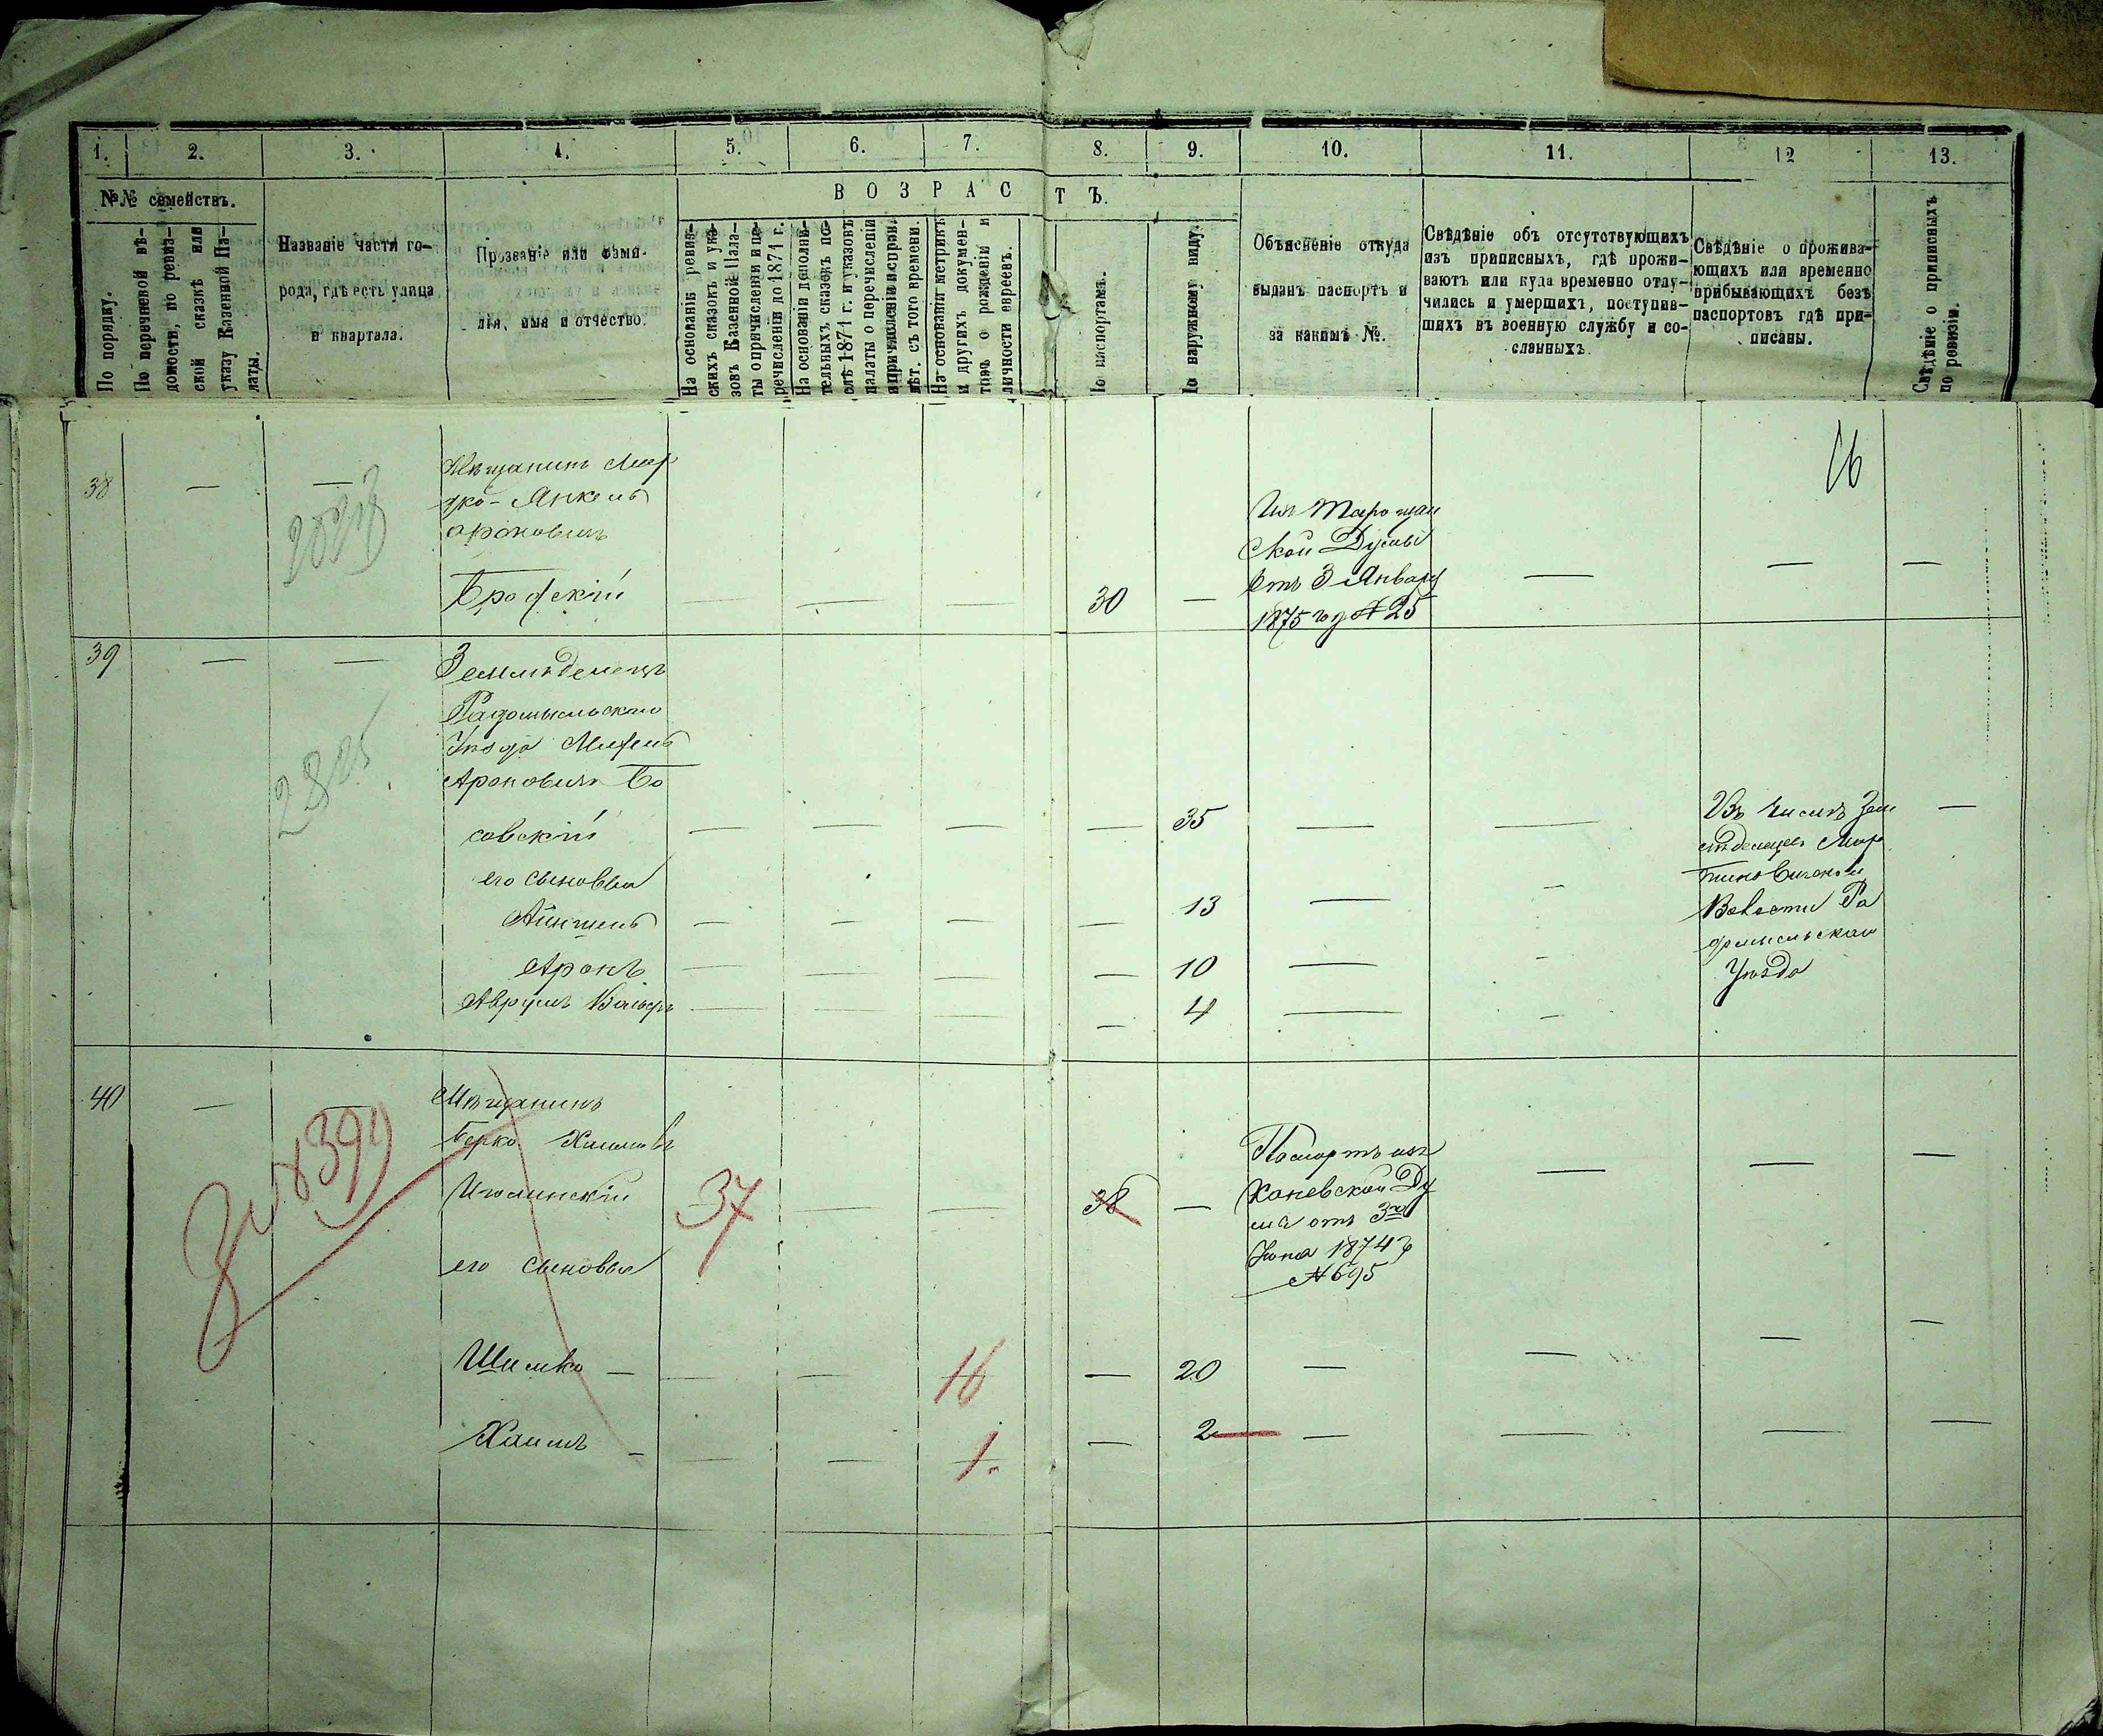 1. 2. 3. 4. 5. 6. 7. 8. 9. 10. 11. 12 13.
№№ семействъ.
По порядку.
По перечневой вѣ-
домости, по ревиз-
ской сказкѣ или
указу Казенной Па-
латы.
Названіе части го-
рода, гдѣ есть улица
и квартала.
Прозваніе или фами-
лія, имя и отчество.
ВОЗРАСТЪ.
На основаніи ревиз-
скихъ сказокъ и ука-
зовъ Казенной Пала-
ты о причисленіи и пе-
речисленіи до 1871 г.
На основаніи дополни-
тельныхъ сказокъ по-
слѣ 1871 г. и указовъ
палаты о перечисленіи
и причисленіи и
лѣт. съ того времени.
На основаніи метрикъ
и другихъ докумен-
товъ о рожденіи и
личности евреевъ.
По паспортамъ.
По наружному виду.
Объясненіе откуда
выданъ паспортъ и
за какимъ №.
Свѣдѣніе объ отсутствующихъ
изъ приписныхъ, гдѣ прожи-
ваютъ или куда временно отлу-
чились и умершихъ, поступив-
шихъ въ военную службу и со-
сланныхъ.
Свѣдѣніе о прожива-
ющихъ или временно
прибывающихъ безъ
паспортовъ гдѣ при-
писаны.
Свѣдѣніе о приписныхъ
по ревизіи.
16
38 — —
Мѣщанинъ Мор
дко-Янкель
Ароновичъ
Бродскій — — — 30 —
Изъ Таращан
ской Думы
отъ 3 Января
1875 год № 25
— — —
39 — —
2825
Земледѣлецъ
Радомысльскаго
Уѣзда
Ароновичъ Бо
совскій — — — — 35 — — —
его сыновья
Айншель — — — — 13 — —
Аронъ — — — — 10 — —
Аврумъ Вольфъ — — — — 4 — —
Въ числѣ Зем
ледѣльцевъ Мар
тиновичской
Волости Ра
домысльскаго
Уѣзда
40 — —
399
Мѣщанинъ
Берко Хаимовъ
37 — — 38 —
Паспортъ изъ
Каневской Ду
мы отъ 3го
Іюня 1874 г
№ 695
— — —
его сыновья
Шимко — — — 16 — 20 — — — —
Хаимъ — — — 1. — 2 — — — —